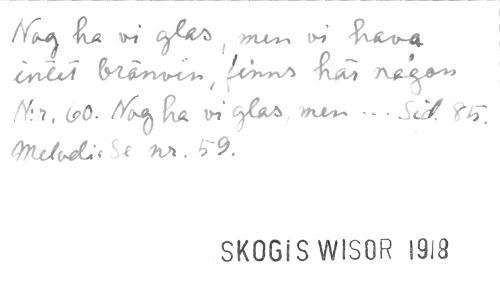 Nog ha vi glas, men vi hava
intet bränvin, finns här någon
N:r. 60. Nog ha vi glas, men ... Sid. 85.
Melodi: Se nr. 59.
SKOGIS WISOR 1918